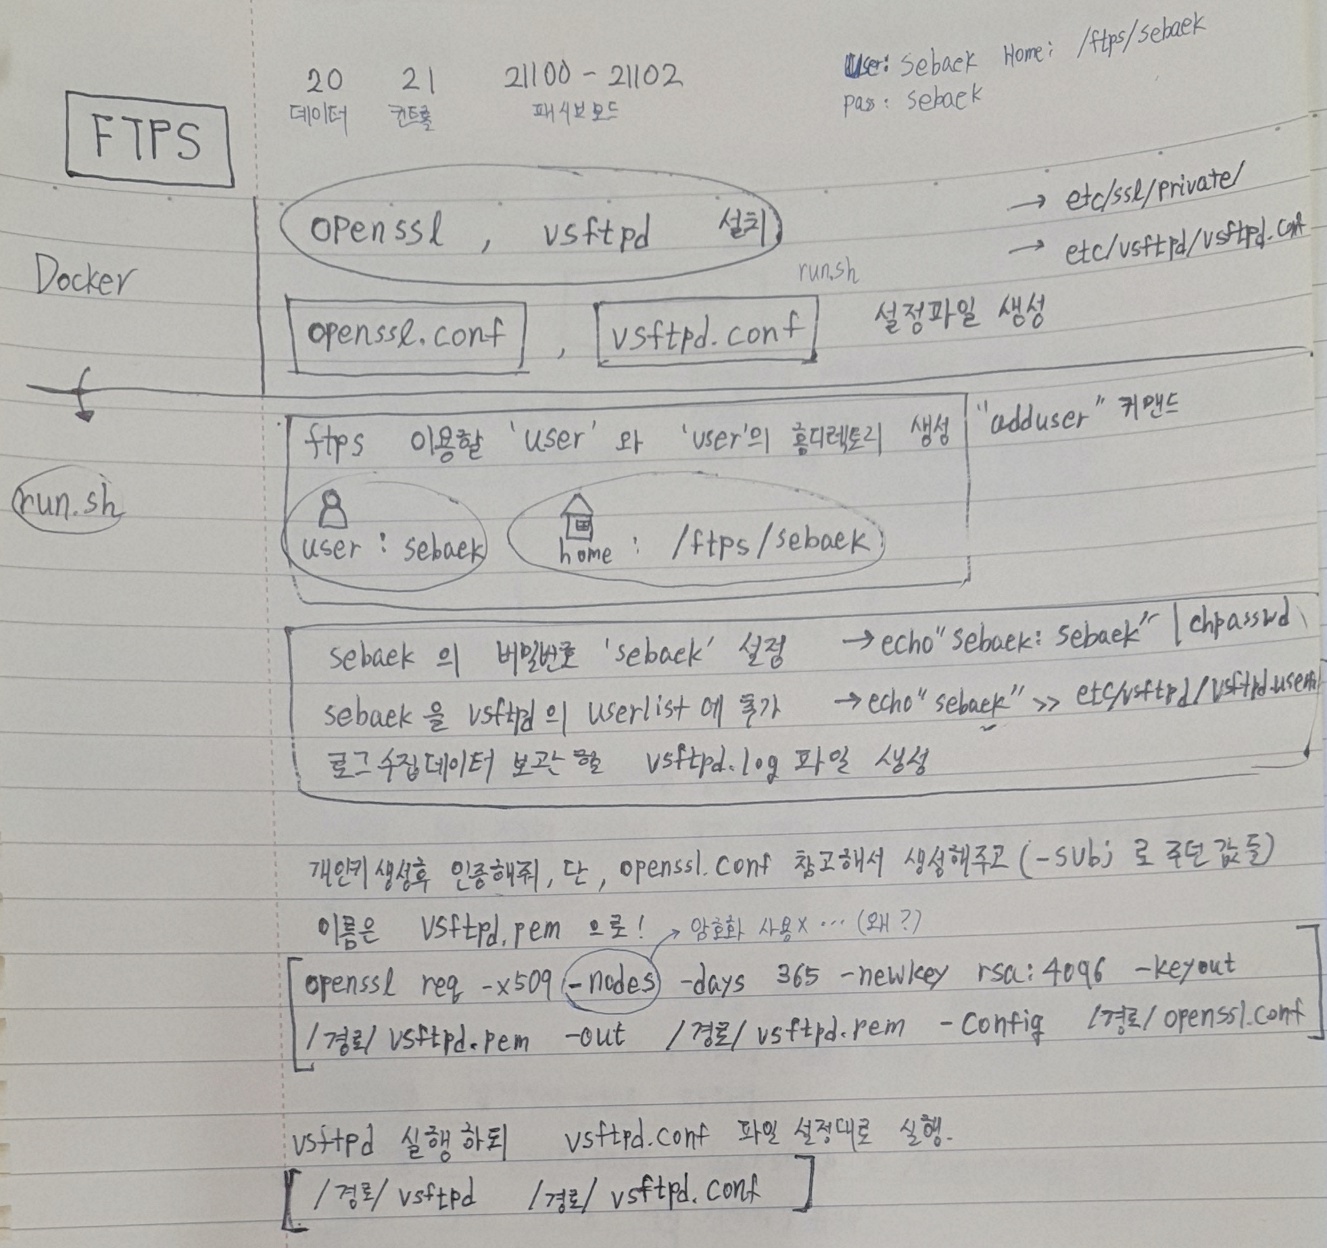 FTPS
20 21 21100 - 21102
데이터 컨트롤 패시브모드
User: sebaek Home: /ftps/sebaek
pass: sebaek
Docker
openssl , vsftpd 설치
→ etc/ssl/private/
→ etc/vsftpd/vsftpd.conf
run.sh
openssl.conf , vsftpd.conf 설정파일 생성
run.sh
ftps 이용할 'user' 와 'user'의 홈디렉토리 생성 "adduser" 커맨드
user : sebaek home : /ftps/sebaek
sebaek 의 비밀번호 'sebaek' 설정 → echo "sebaek: sebaek" | chpasswd
sebaek 을 vsftpd 의 userlist 에 추가 → echo "sebaek" >> etc/vsftpd/
로그 수집데이터 보관 할 vsftpd.log 파일 생성
개인키 생성후 인증해줘, 단, openssl.conf 참고해서 생성해주고 (-subj 로 주던 값들)
이름은 vsftpd.pem 으로! → 암호화 사용X ... (왜?)
[openssl req -x509 -nodes -days 365 -newkey rsa:4096 -keyout
/경로/ vsftpd.pem -out /경로/ vsftpd.pem -config /경로/ openssl.conf]
vsftpd 실행 하되 vsftpd.conf 파일 설정대로 실행.
[ /경로/ vsftpd /경로/ vsftpd.conf ]